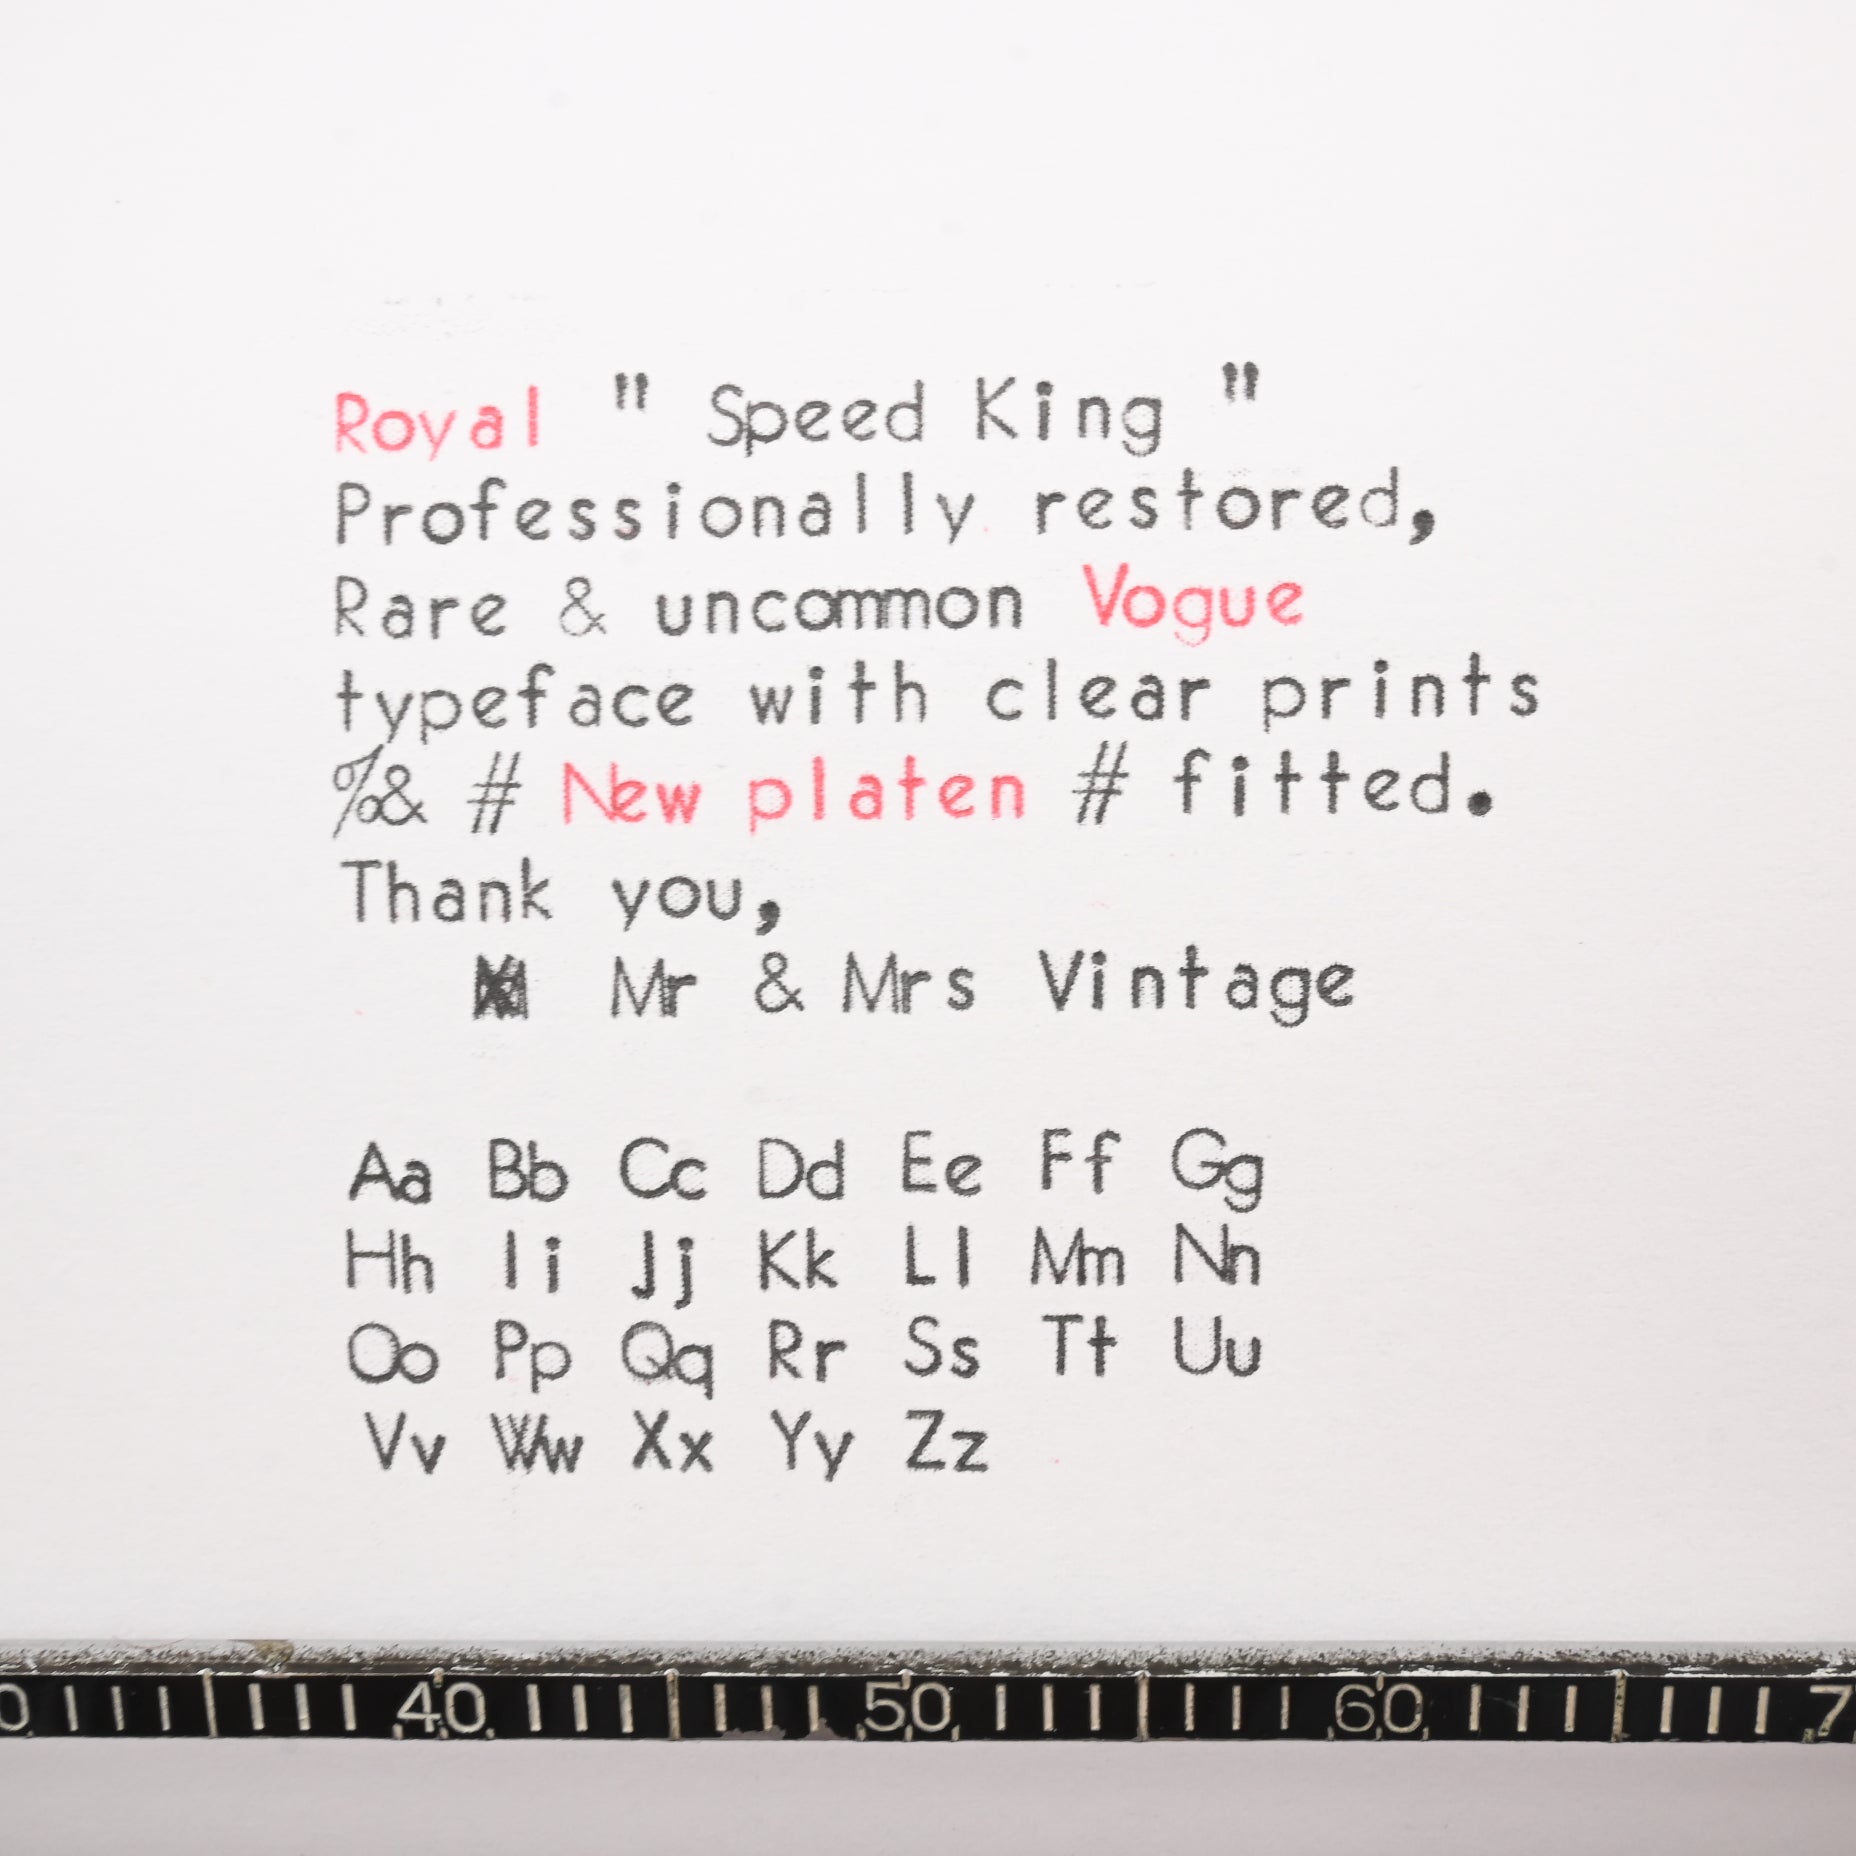 Royal " Speed King "
Professionally restored,
Rare & uncommon Vogue
typeface with clear prints
%& # New platen # fitted.
Thank you,
Mr & Mrs Vintage
Aa Bb Cc Dd Ee Ff Gg
Hh Ii Jj Kk Ll Mm Nn
Oo Pp Qq Rr Ss Tt Uu
Vv Ww Xx Yy Zz
40 50 60